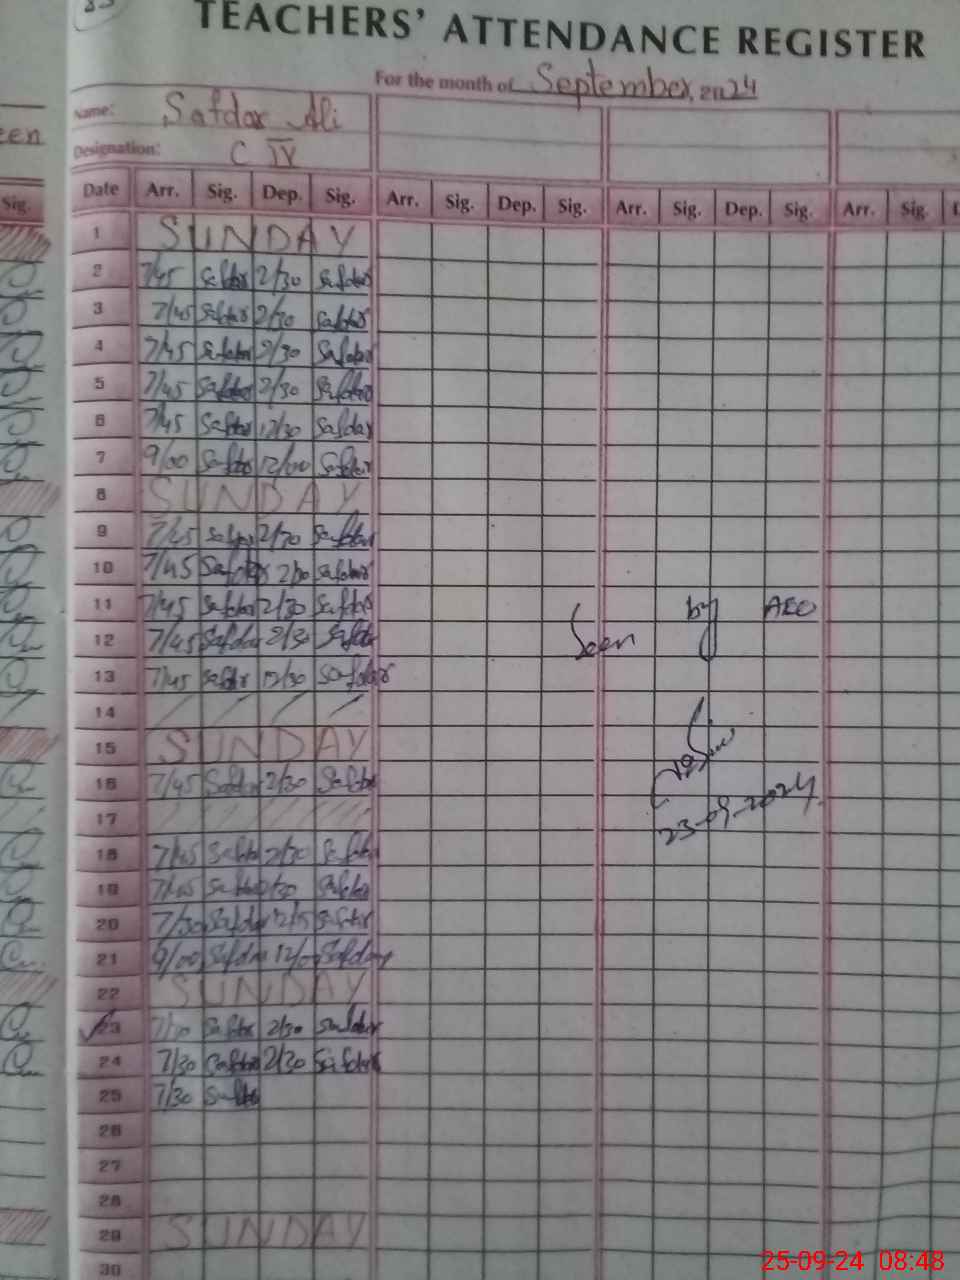 TEACHERS' ATTENDANCE REGISTER
For the month of September, 2024
Name: Safdar Ali
Designation: C IV
een
Sig.
Date Arr. Sig. Dep. Sig. Arr. Sig. Dep. Sig. Arr. Sig. Dep. Sig. Arr. Sig.
1 SUNDAY
2 7/45 Safdar 2/30 Safdar
3 7/45 Safdar 2/30 Safdar
4 7/45 Safdar 2/30 Safdar
5 7/45 Safdar 2/30 Safdar
6 7/45 Safdar 12/30 Safdar
7 9/00 Safdar 12/00 Safdar
8 SUNDAY
9 7/45 Safdar 2/30 Safdar
10 7/45 Safdar 2/30 Safdar
11 7/45 Safdar 2/30 Safdar
Seen by AEO
12 7/45 Safdar 2/30 Safdar
13 7/45 Safdar 12/30 Safdar
14
15 SUNDAY
16 7/45 Safdar 2/30 Safdar
17
23-09-2024
18 7/45 Safdar 2/30 Safdar
19 7/45 Safdar 2/30 Safdar
20 7/30 Safdar 12/15 Safdar
21 9/00 Safdar 12/00 Safdar
22 SUNDAY
23 7/30 Safdar 2/30 Safdar
24 7/30 Safdar 2/30 Safdar
25 7/30 Safdar
26
27
28
29 SUNDAY
30
25-09-24 08:48